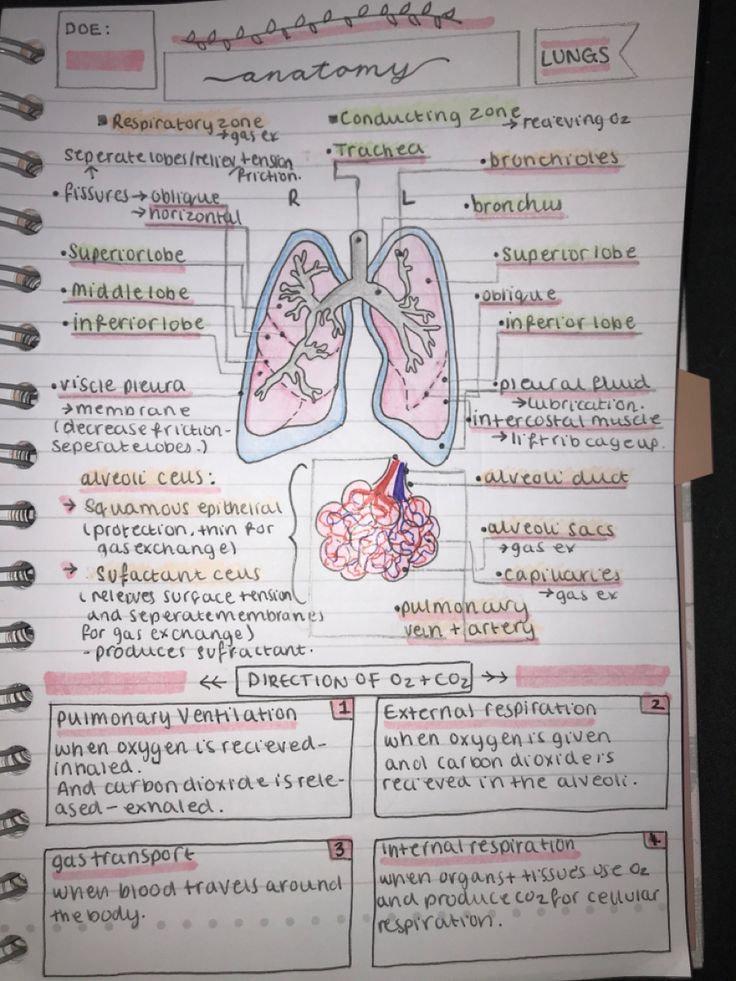 DOE:
anatomy
LUNGS
Respiratory zone
→ gas ex
Conducting zone
→ recieving O2
seperate lobes/reliev tension
friction.
• Trachea
• bronchioles
• fissures → oblique
→ horizontal
R
L
• bronchus
• superior lobe
• superior lobe
• middle lobe
• oblique
• inferior lobe
• inferior lobe
• viscle pleura
→ membrane
(decrease friction-
seperate lobes.)
• pleural fluid
→ lubrication.
• intercostal muscle
→ lift rib cage up.
alveoli cells:
→ squamous epithelial
(protection, thin for
gas exchange)
→ sufactant cells
(relieves surface tension
and seperate membranes
for gas exchange)
- produces sufractant.
• alveoli duct
• alveoli sacs
→ gas ex
• capillaries
→ gas ex
• pulmonary
vein + artery
<<- DIRECTION OF O2 + CO2 ->>
Pulmonary Ventilation 1
when oxygen is recieved-
inhaled.
And carbon dioxide is rele-
ased - exhaled.
External respiration 2
when oxygen is given
and carbon dioxide is
recieved in the alveoli.
gas transport 3
when blood travels around
the body.
Internal respiration 4
when organs + tissues use O2
and produce CO2 for cellular
respiration.